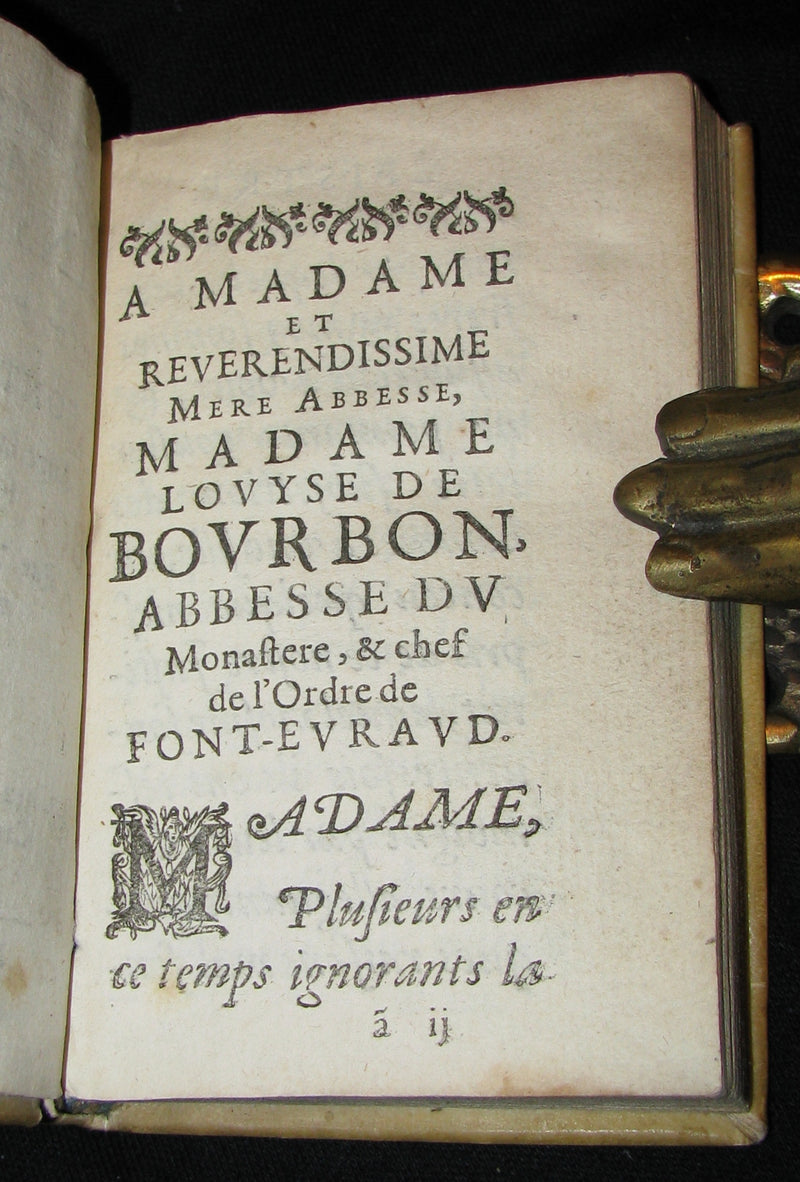 A MADAME
ET
REVERENDISSIME
MERE ABBESSE,
MADAME
LOVYSE DE
BOVRBON,
ABBESSE DV
Monaſtere, & chef
de l'Ordre de
FONT-EVRAVD.
MADAME,
Pluſieurs en
ce temps ignorants la
ã ij